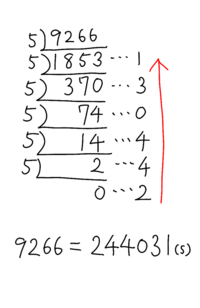 5)9266
5)1853…1
5)370…3
5)74…0
5)14…4
5)2…4
0…2
9266=244031(5)